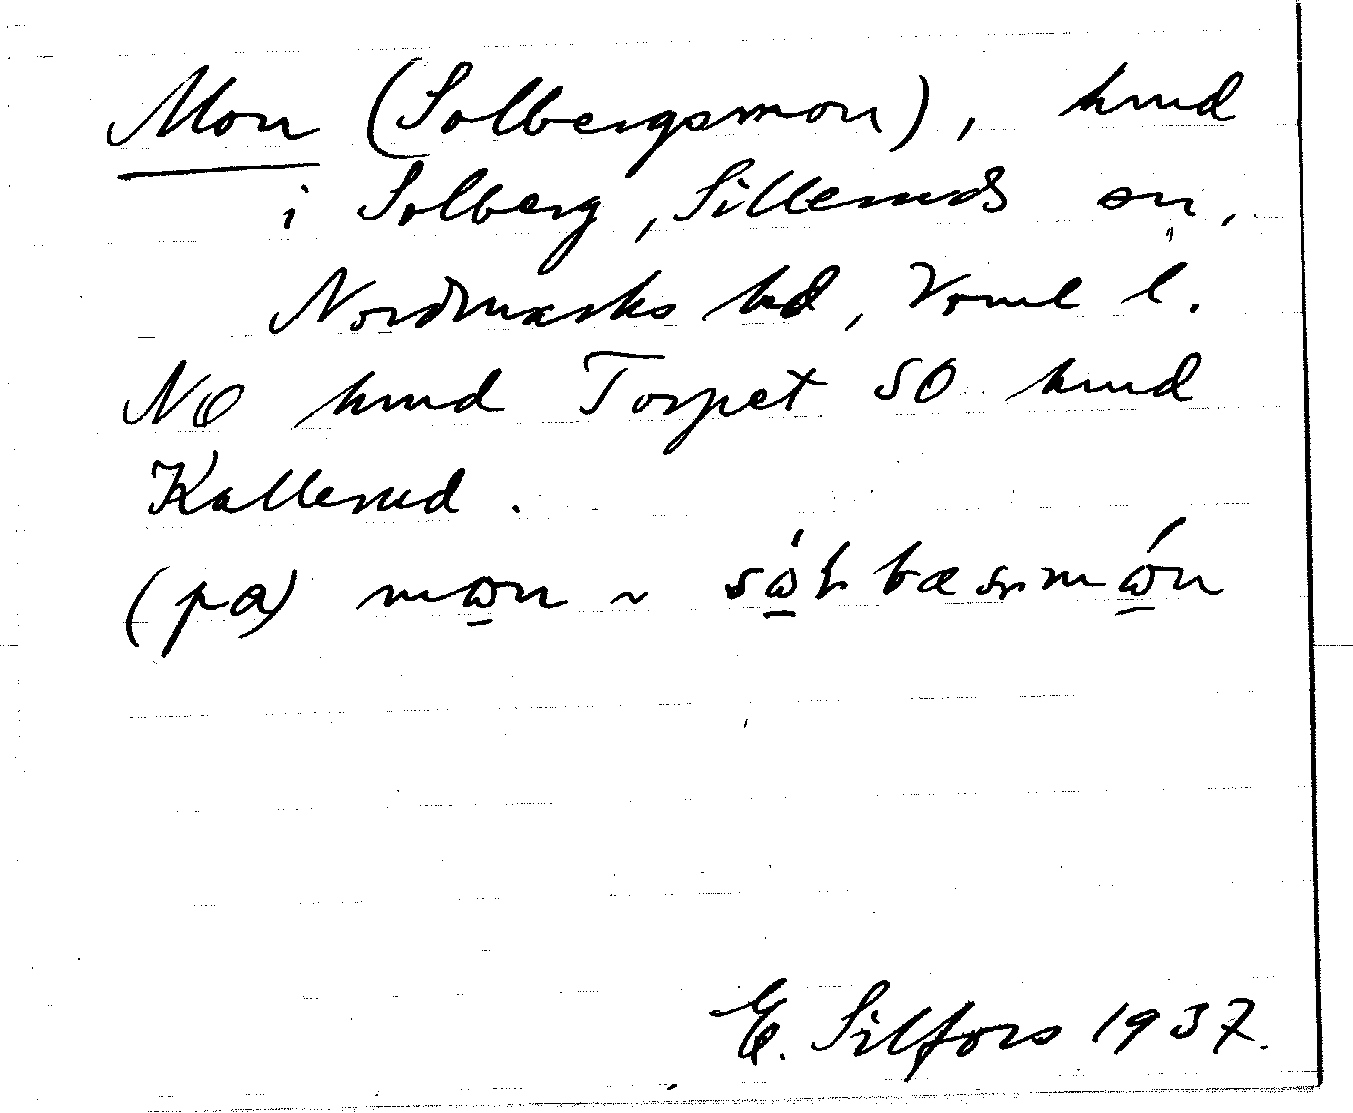 Mon (Solbergsmon), hmd
i Solberg, Silleruds sn,
Nordmarks hd, Vrml l.
NO hmd Torpet SO hmd
Kallerud.
(pa) mωn ~
E. Silfors 1937.